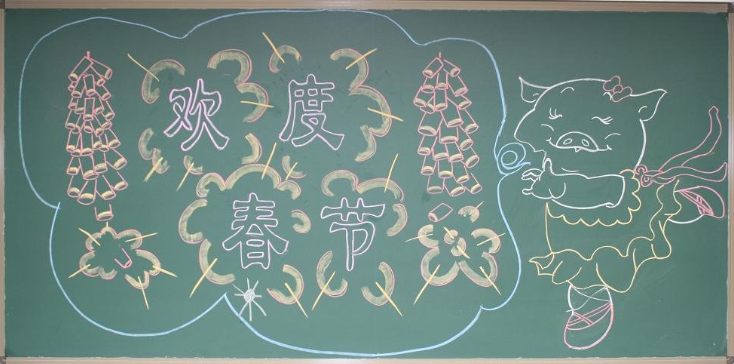 欢度
春节